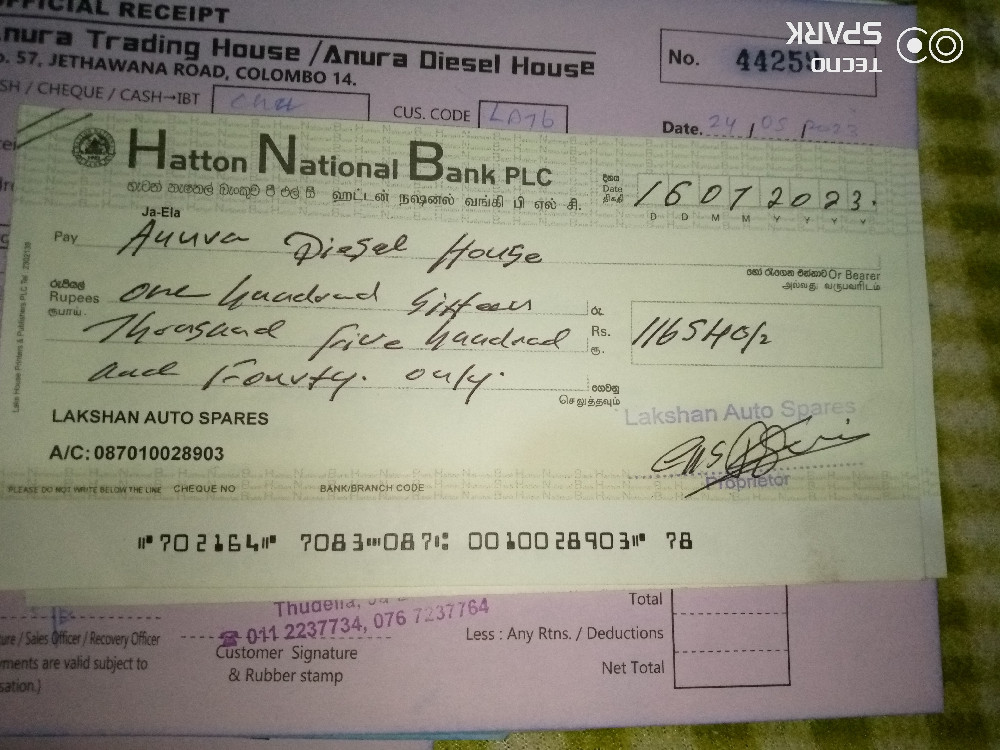 OFFICIAL RECEIPT
Anura Trading House /Anura Diesel House
No. 57, JETHAWANA ROAD, COLOMBO 14.
No.
TECNO
SPARK
CASH / CHEQUE / CASH→IBT
CUS. CODE LA76
Date. 24 / 05 / 2023
Hatton National Bank PLC
හැටන් නැෂනල් බැංකුව පී එල් සී ஹட்டன் நஷனல் வங்கி பி எல் சி.
දිනය
Date
திகதி
16072023.
D D M M Y Y Y Y
Ja-Ela
Pay Anura Diesel House
හෝ රැගෙන එන්නාට Or Bearer
அல்லது வருபவரிடம்
රුපියල්
Rupees one hundred sixteen
ரூபாய்
Thousand five hundred
and Fourty. only.
රු.
Rs. 116540/=
ரூ.
ගෙවනු
செலுத்தவும்
LAKSHAN AUTO SPARES
A/C: 087010028903
Lakshan Auto Spares
Proprietor
PLEASE DO NOT WRITE BELOW THE LINE CHEQUE NO BANK/BRANCH CODE
⑈702164⑈ 7083⑉087⑆ 0010028903⑈ 78
☎ 011 2237734, 076 7237764
Customer Signature
& Rubber stamp
/ Sales Officer / Recovery Officer
are valid subject to
Total
Less : Any Rtns. / Deductions
Net Total